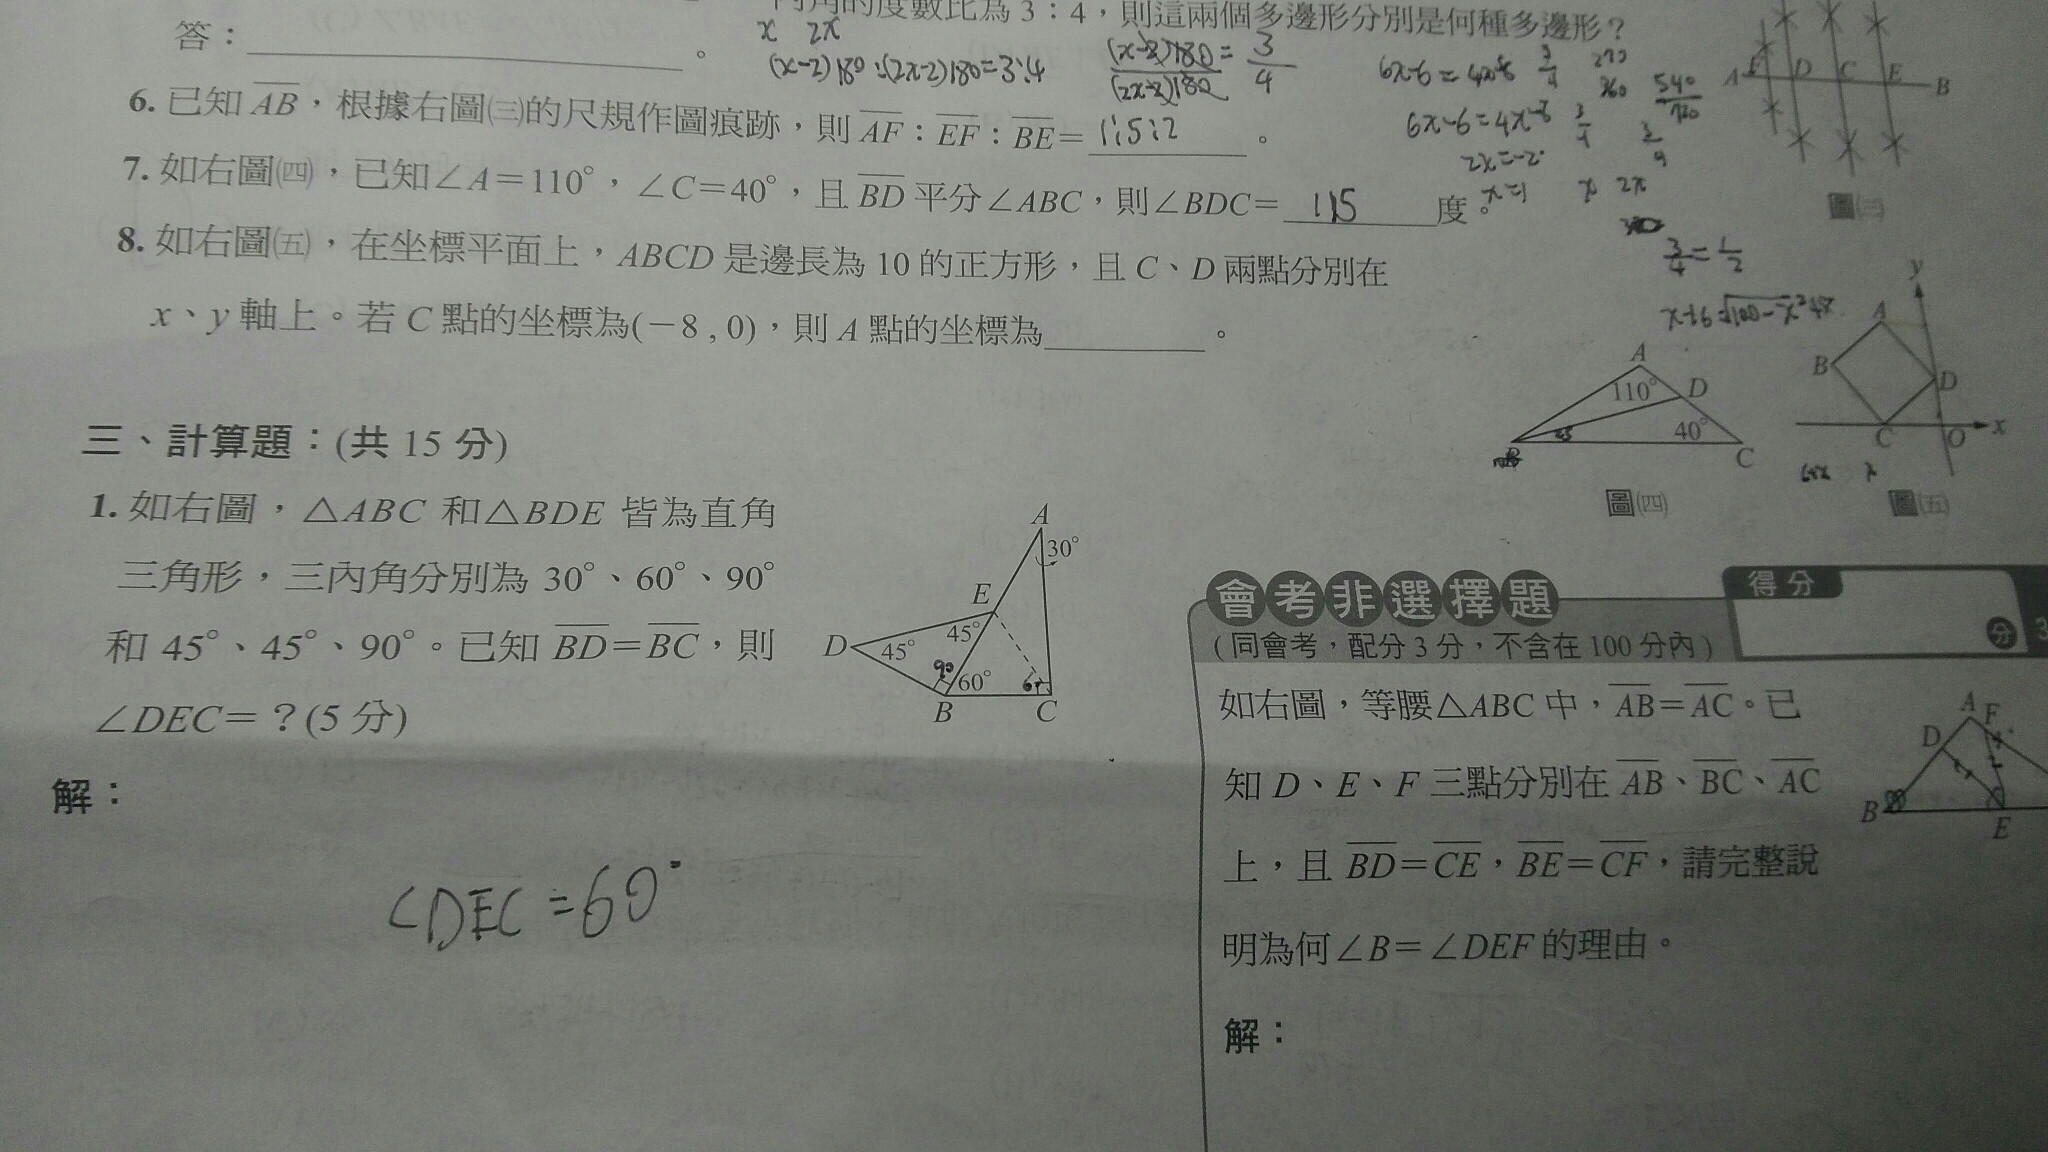 內角的度數比為 3：4，則這兩個多邊形分別是何種多邊形？
答：＿＿＿＿＿＿＿＿。
x 2x
(x-2)180:(2x-2)180=3:4
(x-2)180/(2x-2)180=3/4
6x-6=4x-8
6x-6=4x-8
2x=-2
x=1
x 2x
3/4
270
360
540/720
3/4
3/4=1/2
6. 已知 AB，根據右圖㈢的尺規作圖痕跡，則 AF：EF：BE=1:5:2。
7. 如右圖㈣，已知∠A=110°，∠C=40°，且 BD 平分∠ABC，則∠BDC=115度。
8. 如右圖㈤，在坐標平面上，ABCD 是邊長為 10 的正方形，且 C、D 兩點分別在
x、y 軸上。若 C 點的坐標為(-8 , 0)，則 A 點的坐標為＿＿＿＿。
A F D C E B
圖㈢
A
110° D
40°
C
圖㈣
y
A
B
D
C O x
圖㈤
三、計算題：(共 15 分)
1. 如右圖，△ABC 和△BDE 皆為直角
三角形，三內角分別為 30°、60°、90°
和 45°、45°、90°。已知 BD=BC，則
∠DEC=？(5 分)
A
30°
E
45°
D 45°
90
60°
B C
解：
∠DEC=60°
會考非選擇題
得分
分
(同會考，配分 3 分，不含在 100 分內)
如右圖，等腰△ABC 中，AB=AC。已
知 D、E、F 三點分別在 AB、BC、AC
上，且 BD=CE，BE=CF，請完整說
明為何∠B=∠DEF 的理由。
A F
D
B E
解：